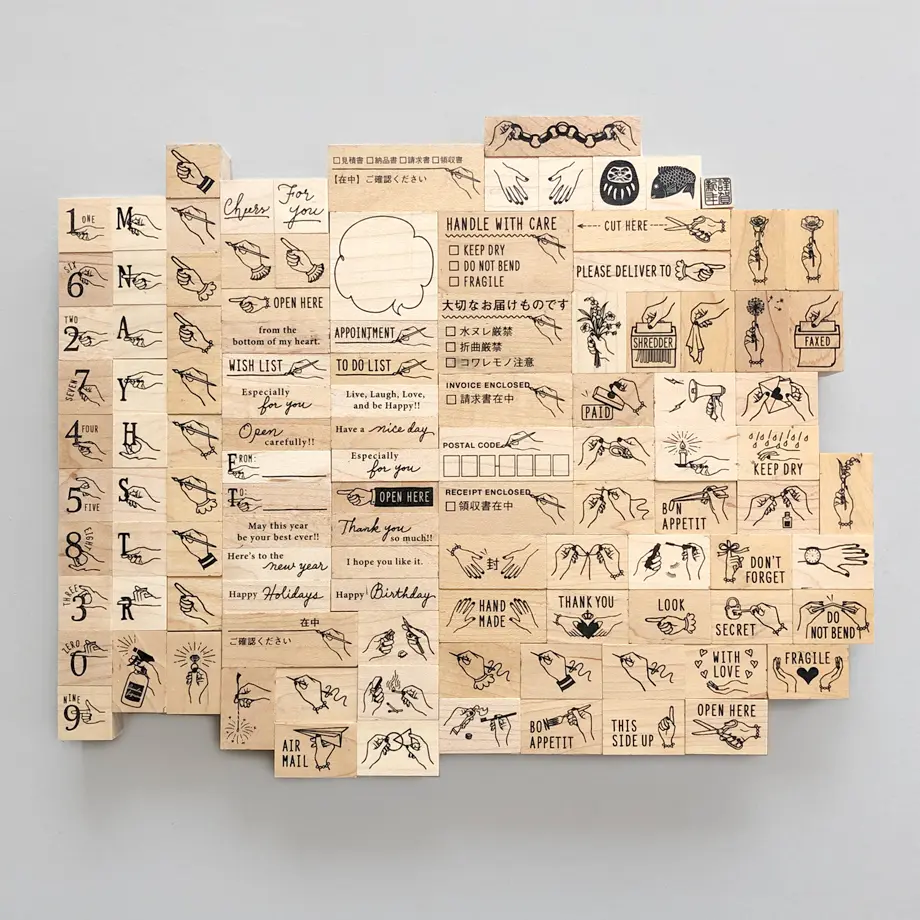 1 ONE
M
SIX
6
N
TWO
2
A
SEVEN
7
Y
4 FOUR
H
5 FIVE
S
8 EIGHT
T
THREE
3
R
ZERO
0
NINE
9
Cheers
For you
OPEN HERE
from the
bottom of my heart.
WISH LIST
Especially
for you
Open
carefully!!
FROM:
TO:
May this year
be your best ever!!
Here's to the
new year
Happy Holidays
在中
ご確認ください
AIR
MAIL
□見積書 □納品書 □請求書 □領収書
【在中】ご確認ください
APPOINTMENT
TO DO LIST
Live, Laugh, Love,
and be Happy!!
Have a nice day
Especially
for you
OPEN HERE
Thank you
so much!!
I hope you like it.
Happy Birthday
HANDLE WITH CARE
□ KEEP DRY
□ DO NOT BEND
□ FRAGILE
大切なお届けものです
□ 水ヌレ厳禁
□ 折曲厳禁
□ コワレモノ注意
INVOICE ENCLOSED
□ 請求書在中
POSTAL CODE
RECEIPT ENCLOSED
□ 領収書在中
封
HAND
MADE
謹賀
新年
CUT HERE
PLEASE DELIVER TO
SHREDDER
FAXED
PAID
KEEP DRY
BON
APPETIT
DON'T
FORGET
THANK YOU
LOOK
SECRET
DO
NOT BEND
WITH
LOVE
FRAGILE
BON
APPETIT
THIS
SIDE UP
OPEN HERE